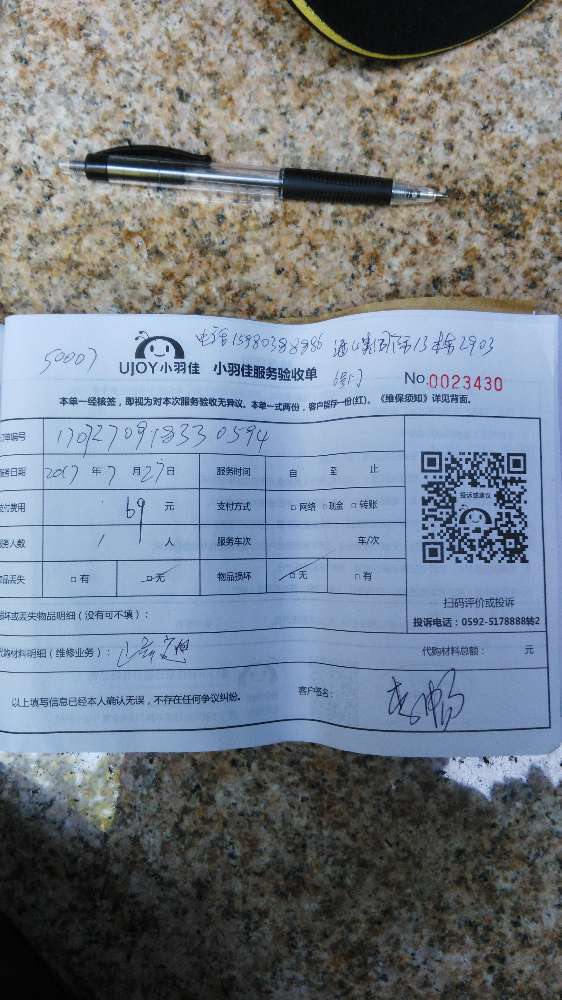 50007
UJOY小羽佳 小羽佳服务验收单
No.0023430
本单一经核签，即视为对本次服务验收无异议。本单一式两份，客户留存一份(红)。《维保须知》详见背面。
单编号 1707270918330594
务日期 2017 年 7 月 27 日 服务时间 自 至 止
付费用 69 元 支付方式 □ 网络 □ 现金 □ 转账
务人数 1 人 服务车次 车/次
品丢失 □ 有 □ 无 物品损坏 □ 无 □ 有
投诉或建议
扫码评价或投诉
投诉电话：0592-5178888转2
损坏或丢失物品明细（没有可不填）：
代购材料明细（维修业务）：
代购材料总额： 元
以上填写信息已经本人确认无误，不存在任何争议纠纷。
客户签名：